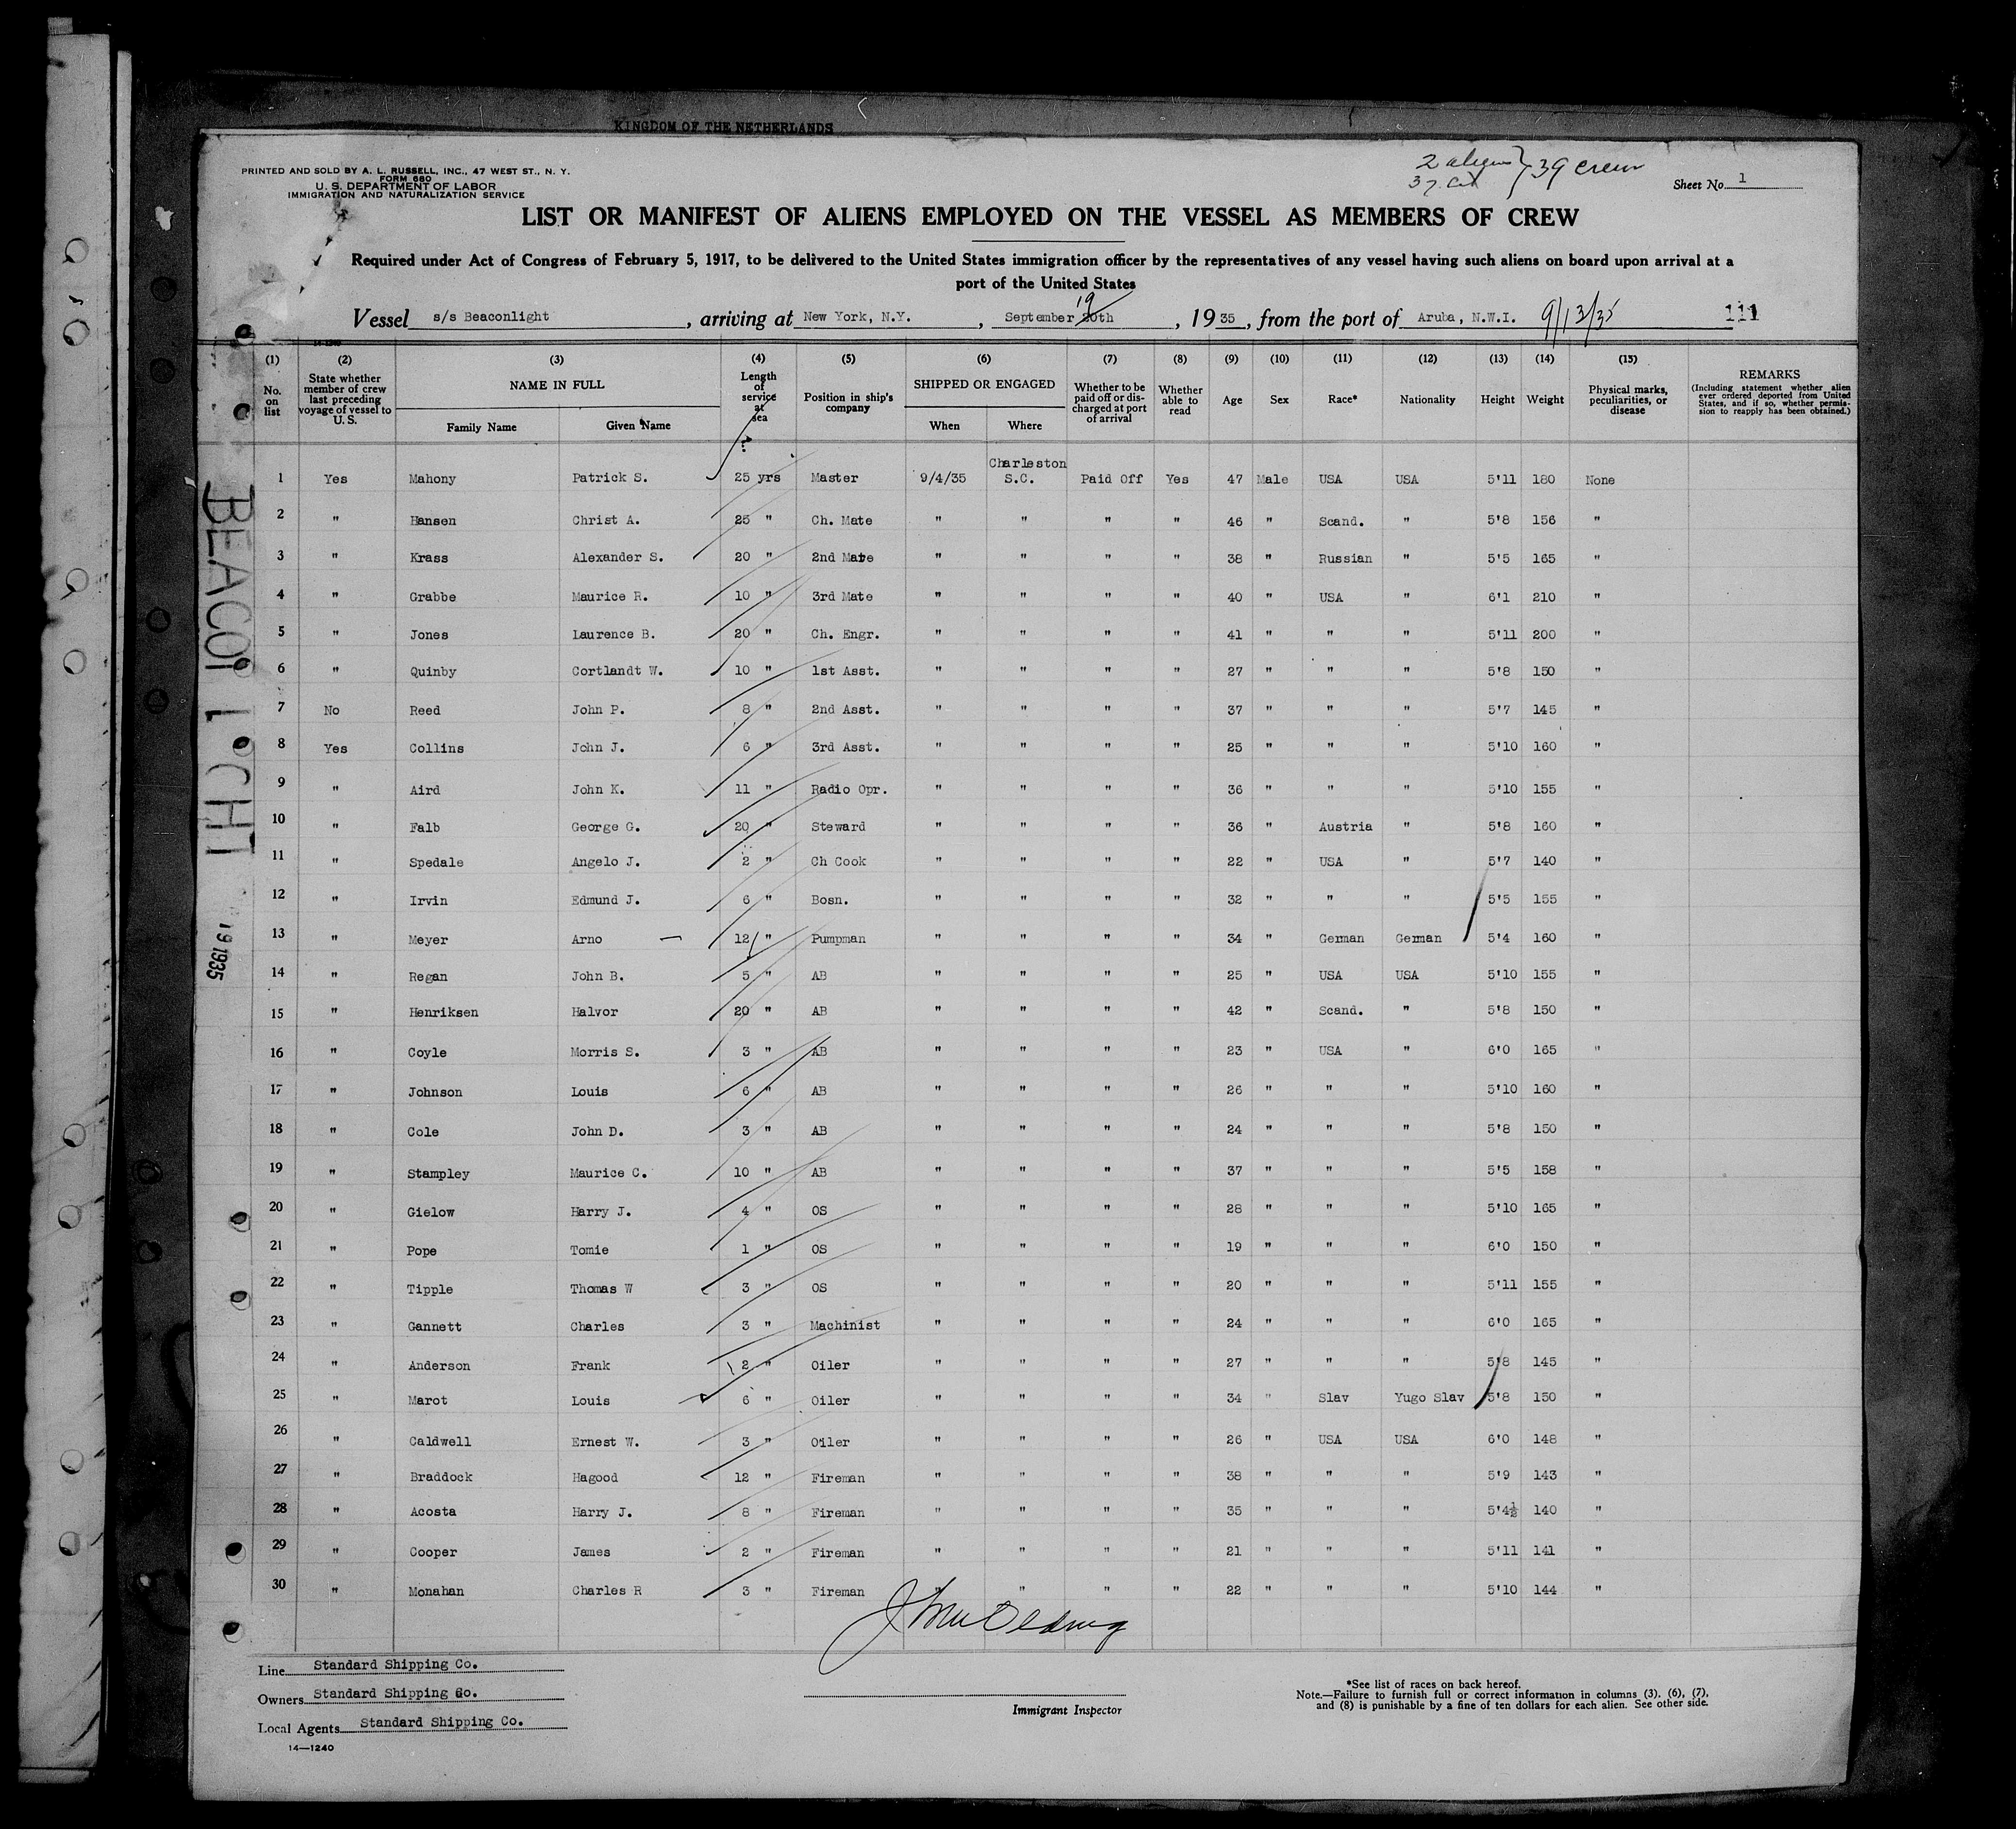 KINGDOM OF THE NETHERLANDS
PRINTED AND SOLD BY A. L. RUSSELL, INC., 47 WEST ST., N. Y.
FORM 680
U. S. DEPARTMENT OF LABOR
IMMIGRATION AND NATURALIZATION SERVICE
2 aliens } 39 crew
37 cit
Sheet No. 1
LIST OR MANIFEST OF ALIENS EMPLOYED ON THE VESSEL AS MEMBERS OF CREW
Required under Act of Congress of February 5, 1917, to be delivered to the United States immigration officer by the representatives of any vessel having such aliens on board upon arrival at a
port of the United States
Vessel s/s Beaconlight, arriving at New York, N.Y., September 20th 19, 1935, from the port of Aruba, N.W.I. 9/13/35 111
(1) (2) (3) (4) (5) (6) (7) (8) (9) (10) (11) (12) (13) (14) (15)
No. on list
State whether member of crew last preceding voyage of vessel to U. S.
NAME IN FULL
Family Name Given Name
Length of service at sea
Position in ship's company
SHIPPED OR ENGAGED
When Where
Whether to be paid off or discharged at port of arrival
Whether able to read
Age Sex Race* Nationality Height Weight
Physical marks, peculiarities, or disease
REMARKS
(Including statement whether alien ever ordered deported from United States, and if so, whether permission to reapply has been obtained.)
1 Yes Mahony Patrick S. 25 yrs Master 9/4/35 Charleston S.C. Paid Off Yes 47 Male USA USA 5'11 180 None
2 " Hansen Christ A. 25 " Ch. Mate " " " " 46 " Scand. " 5'8 156 "
3 " Krass Alexander S. 20 " 2nd Mate " " " " 38 " Russian " 5'5 165 "
4 " Grabbe Maurice R. 10 " 3rd Mate " " " " 40 " USA " 6'1 210 "
5 " Jones Laurence B. 20 " Ch. Engr. " " " " 41 " " " 5'11 200 "
6 " Quinby Cortlandt W. 10 " 1st Asst. " " " " 27 " " " 5'8 150 "
7 No Reed John P. 8 " 2nd Asst. " " " " 37 " " " 5'7 145 "
8 Yes Collins John J. 6 " 3rd Asst. " " " " 25 " " " 5'10 160 "
9 " Aird John K. 11 " Radio Opr. " " " " 36 " " " 5'10 155 "
10 " Falb George G. 20 " Steward " " " " 36 " Austria " 5'8 160 "
11 " Spedale Angelo J. 2 " Ch Cook " " " " 22 " USA " 5'7 140 "
12 " Irvin Edmund J. 6 " Bosn. " " " " 32 " " " 5'5 155 "
13 " Meyer Arno 12 " Pumpman " " " " 34 " German German 5'4 160 "
14 " Regan John B. 5 " AB " " " " 25 " USA USA 5'10 155 "
15 " Henriksen Halvor 20 " AB " " " " 42 " Scand. " 5'8 150 "
16 " Coyle Morris S. 3 " AB " " " " 23 " USA " 6'0 165 "
17 " Johnson Louis 6 " AB " " " " 26 " " " 5'10 160 "
18 " Cole John D. 3 " AB " " " " 24 " " " 5'8 150 "
19 " Stampley Maurice C. 10 " AB " " " " 37 " " " 5'5 158 "
20 " Gielow Harry J. 4 " OS " " " " 28 " " " 5'10 165 "
21 " Pope Tomie 1 " OS " " " " 19 " " " 6'0 150 "
22 " Tipple Thomas W 3 " OS " " " " 20 " " " 5'11 155 "
23 " Gannett Charles 3 " Machinist " " " " 24 " " " 6'0 165 "
24 " Anderson Frank 12 " Oiler " " " " 27 " " " 5'8 145 "
25 " Marot Louis 6 " Oiler " " " " 34 " Slav Yugo Slav 5'8 150 "
26 " Caldwell Ernest W. 3 " Oiler " " " " 26 " USA USA 6'0 148 "
27 " Braddock Hagood 12 " Fireman " " " " 38 " " " 5'9 143 "
28 " Acosta Harry J. 8 " Fireman " " " " 35 " " " 5'4½ 140 "
29 " Cooper James 2 " Fireman " " " " 21 " " " 5'11 141 "
30 " Monahan Charles R 3 " Fireman " " " " 22 " " " 5'10 144 "
Line Standard Shipping Co.
Owners Standard Shipping Co.
Local Agents Standard Shipping Co.
14—1240
Immigrant Inspector
*See list of races on back hereof.
Note.—Failure to furnish full or correct information in columns (3), (6), (7),
and (8) is punishable by a fine of ten dollars for each alien. See other side.
19 1935